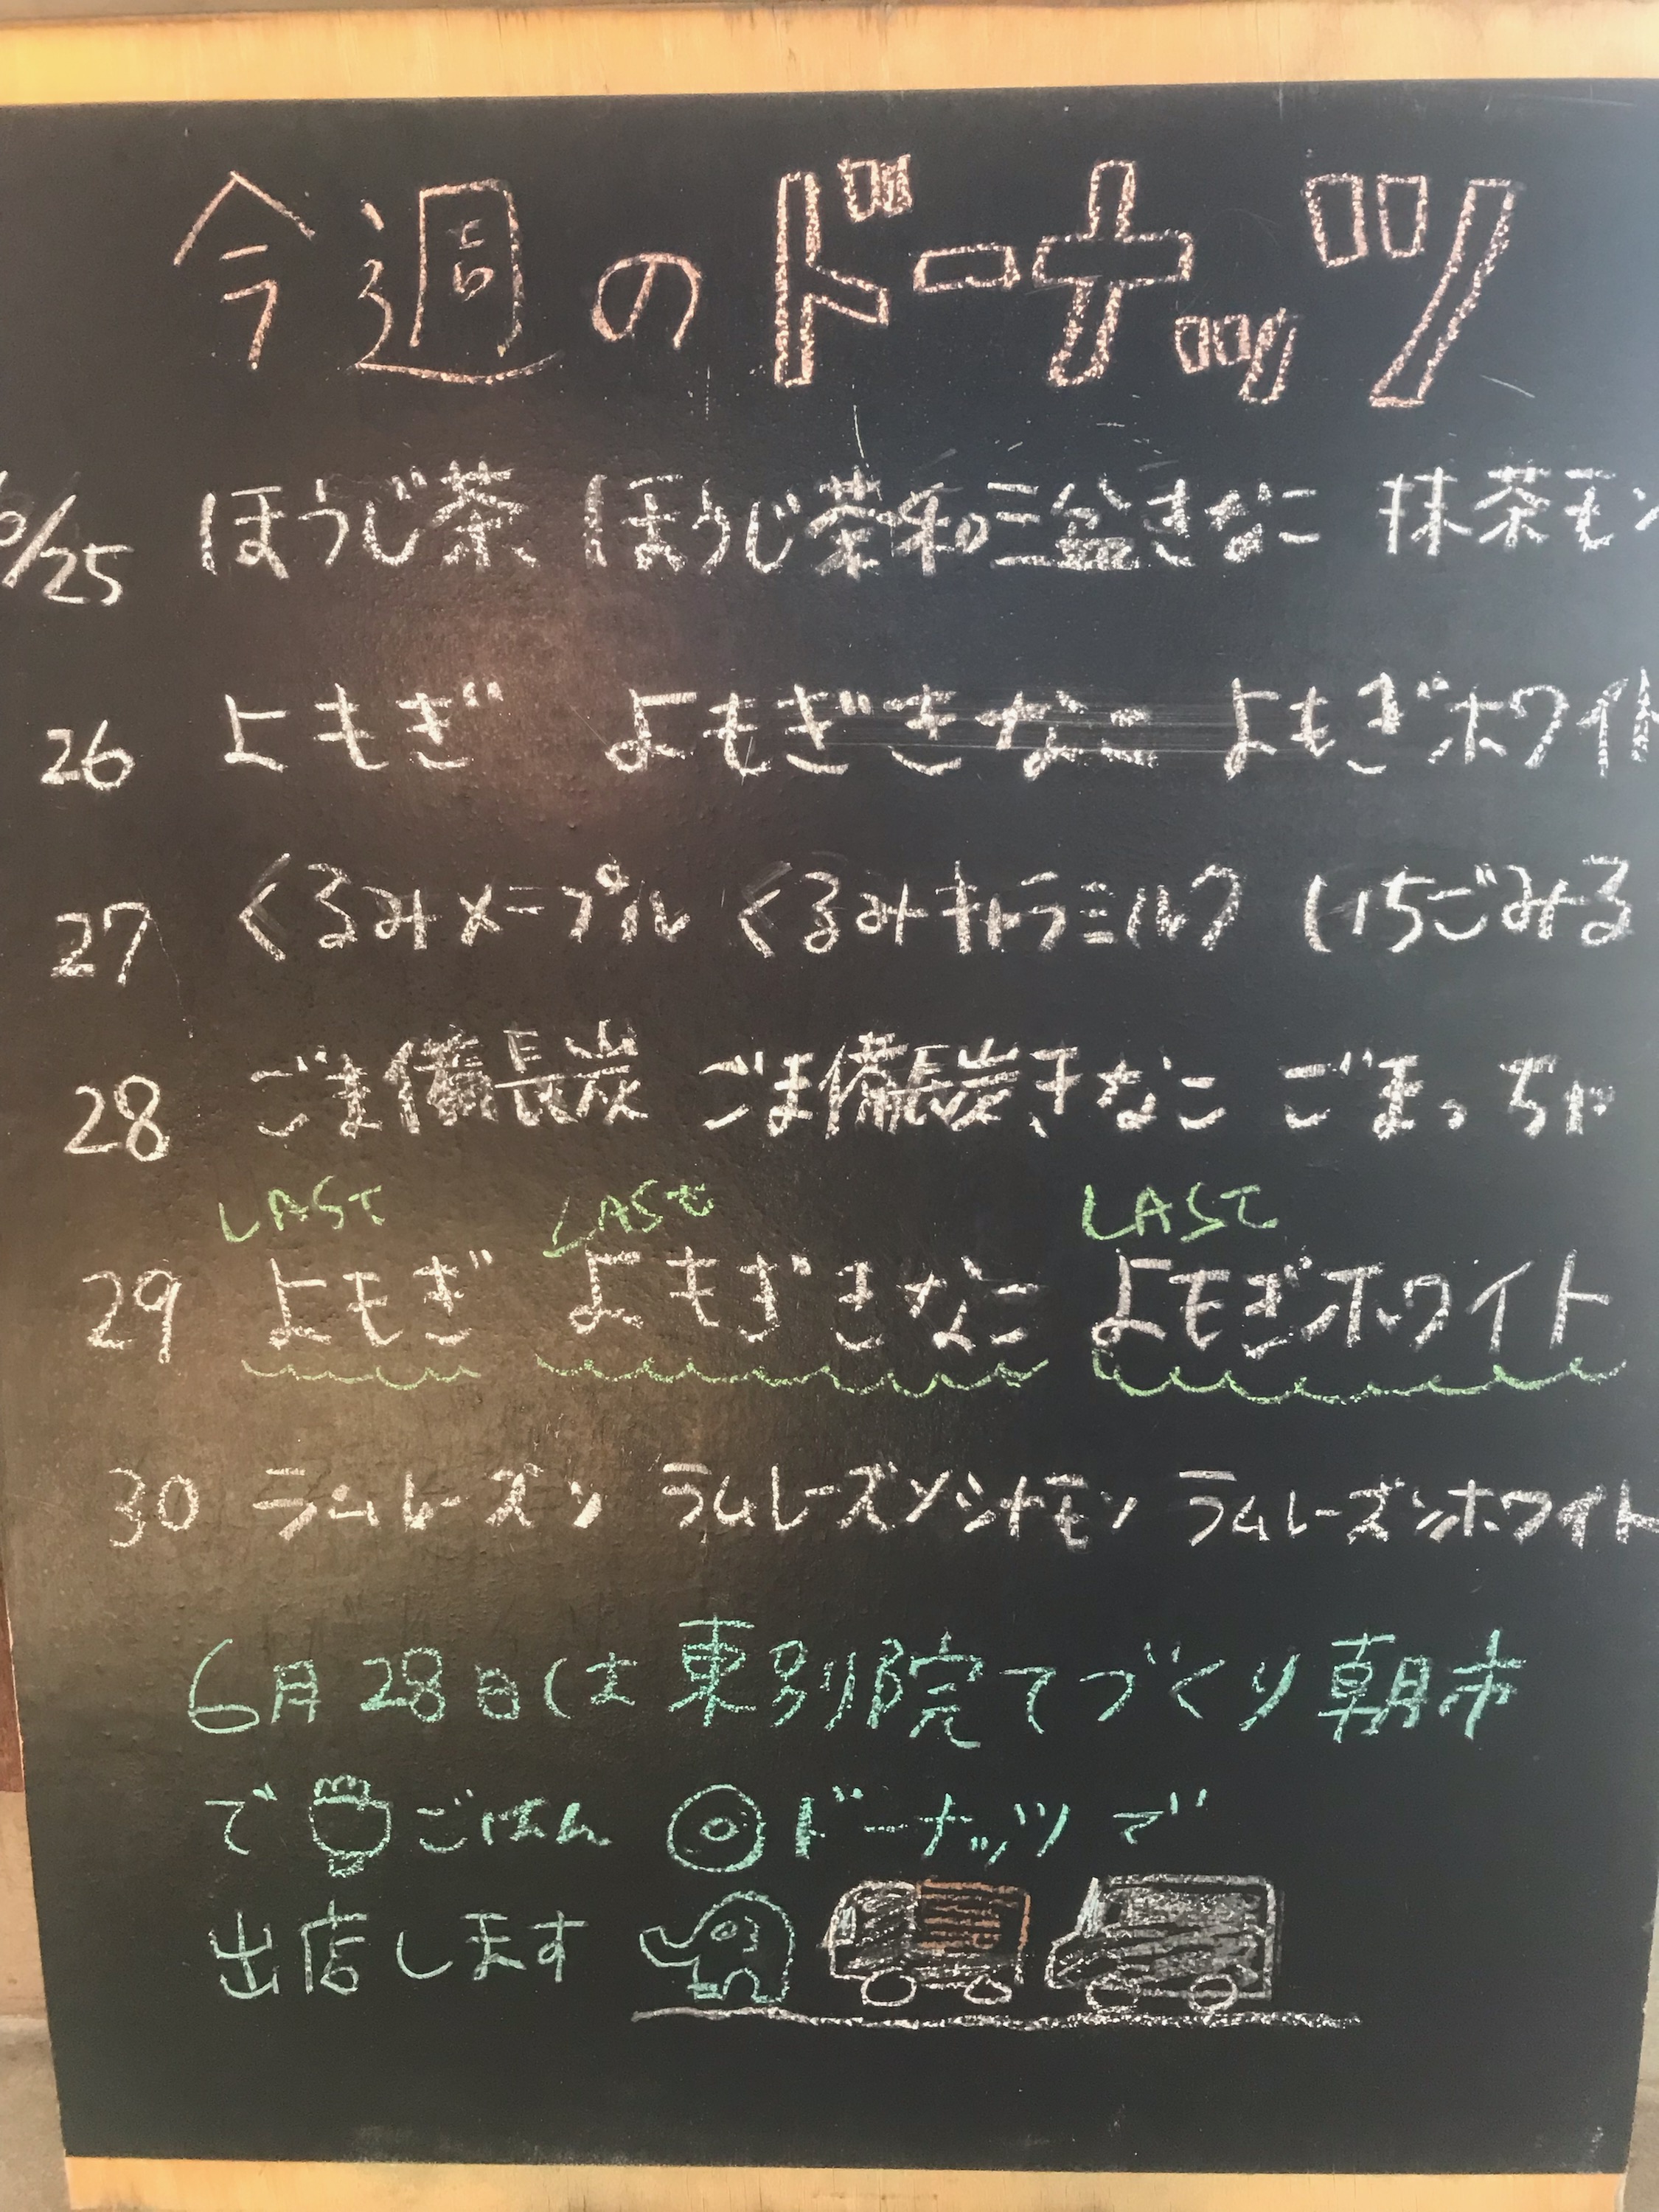 今週のドーナッツ
6/25 ほうじ茶 ほうじ茶和三盆きなこ 抹茶モン
26 よもぎ よもぎきなこ よもぎホワイト
27 くるみメープル くるみキャラミルク いちごみるく
28 ごま備長炭 ごま備長炭きなこ ごまっちゃ
LAST LAST LAST
29 よモぎ よもぎきなこ よモぎホワイト
30 ラムレーズン ラムレーズンシナモン ラムレーズンホワイト
6月28日(土 東別院てづくり朝市
で ごはん ドーナッツで
出店します